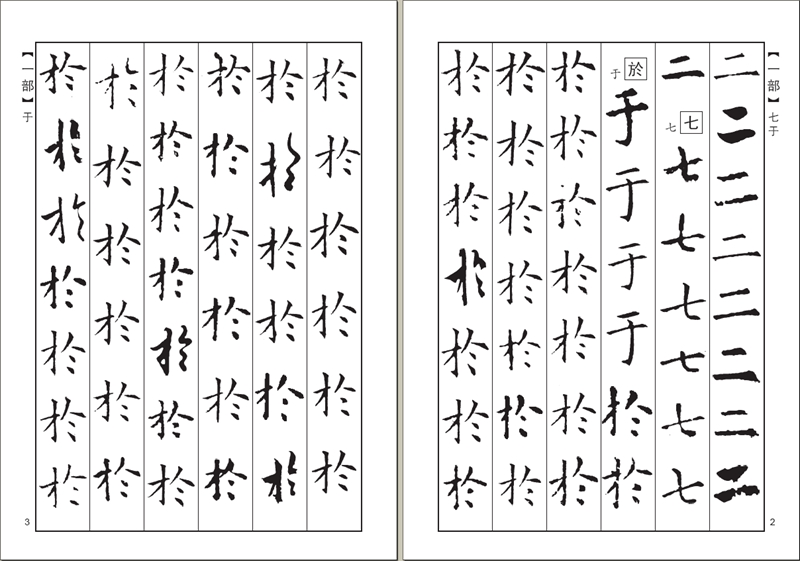 【一部】七于
二二二二二二二二
二
七 七
七七七七七七
於 于
于于于于於於
於於於於於於於
於於於於於於於
於於於於於於於
2
【一部】于
於於於於於於
於於於於於於
於於於於於於
於於於於於於於
於於於於於於
於於於於於於於
3